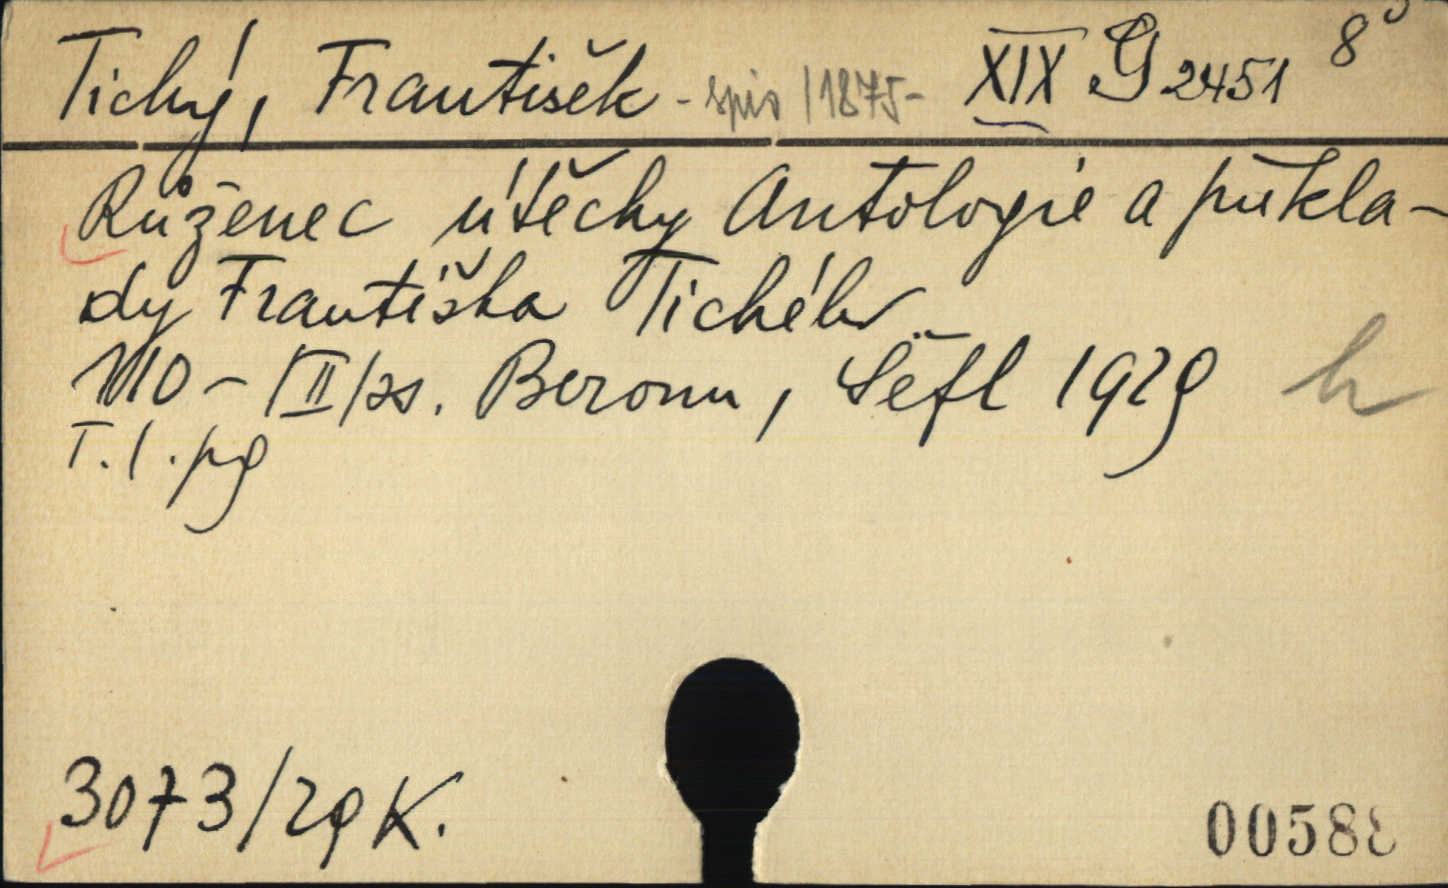 Tichý, František - spis /1875- XIX G 2451 8°
Růženec útěchy Antologie a překla-
dy Františka Tichého
110 - /II/ ss. Beroun, Šefl 1929
T. l. pg
3073/29 K.
00588